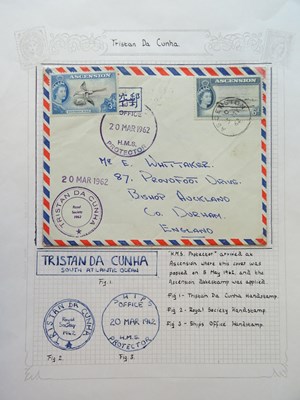 Tristan Da Cunha
ASCENSION
ASCENSION
OFFICE
20 MAR 1962
H.M.S.
PROTECTOR
20 MAR 1962
TRISTAN DA CUNHA
Royal
Society
1962
MR E. WHITTAKER.
87, PROUDFOOT DRIVE,
BISHOP AUCKLAND
CO. DURHAM.
ENGLAND
TRISTAN DA CUNHA
SOUTH ATLANTIC OCEAN
Fig. 1
TRISTAN DA CUNHA
Royal
Society
1962
Fig 2.
SHIPS
OFFICE
20 MAR 1962
H.M.S.
PROTECTOR
Fig. 3
"H.M.S. Protector" arrived at
Ascension where this cover was
posted on 5 May 1962, and the
Ascension datestamp was applied.
Fig 1 - Tristan Da Cunha Handstamp.
Fig 2 - Royal Society Handstamp
Fig 3 - Ships Office Handstamp.